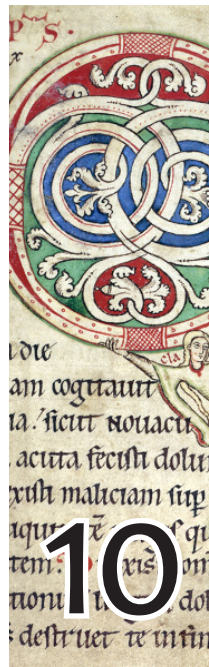 PS.
x
a die
cla
am cogitauit
ia. sicut nouacu
acuta fecisti dolu
xisti maliciam sup
iqui qu
tem xis om
tioni dol
destruet te in fin
10